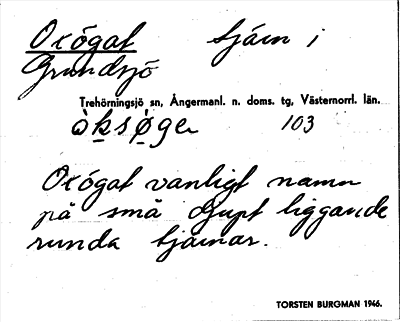 Oxögat tjärn i
Grundsjö
Trehörningsjö sn, Ångermanl. n. doms. tg, Västernorrl. län.
òksøgen 103
Oxögat vanligt namn
på små djupt liggande
runda tjärnar.
TORSTEN BURGMAN 1946.